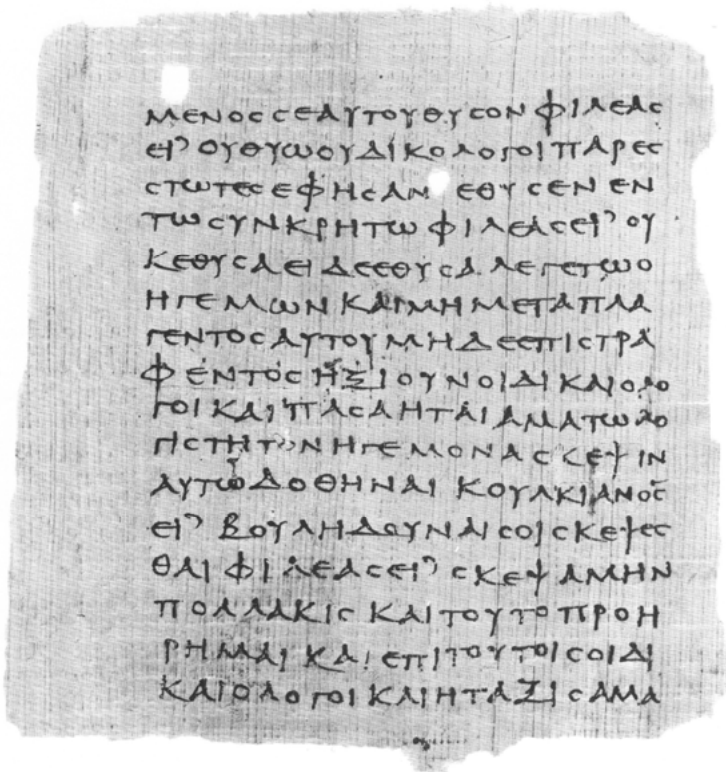 ΜΕΝΟϹϹΕΑΥΤΟΥΘΥϹΟΝ ΦΙΛΕΑϹ
ΕΙ⁾ ΟΥΘΥΩΟΥΔΙΚΟΛΟΓΟΙΠΑΡΕϹ
ϹΤΩΤΕϹΕΦΗϹΑΝ ΕΘΥϹΕΝ ΕΝ
ΤΩϹΥΝΚΡΗΤΩ ΦΙΛΕΑϹΕΙ⁾ ΟΥ
ΚΕΘΥϹΑΕΙΔΕΕΘΥϹΑ ΛΕΓΕΤΩΟ
ΗΓΕΜΩΝ ΚΑΙΜΗΜΕΤΑΠΛΑ
ΓΕΝΤΟϹΑΥΤΟΥΜΗΔΕΕΠΙϹΤΡΑ
ΦΕΝΤΟϹΗΞΙΟΥΝΟΙΔΙΚΑΙΟΛΟ
ΓΟΙ ΚΑΙ ΠΑϹΑΗΤΑΙ ΑΜΑΤΩΛΟ
ΓΙϹΤΗΤΟΝΗΓΕΜΟΝΑϹΚΕΨΙΝ
ΑΥΤΩΔΟΘΗΝΑΙ ΚΟΥΛΚΙΑΝΟϹ
ΕΙ⁾ ΒΟΥΛΗΔΟΥΝΑΙϹΟΙϹΚΕΨΕϹ
ΘΑΙ ΦΙΛΕΑϹΕΙ⁾ ϹΚΕΨΑΜΗΝ
ΠΟΛΛΑΚΙϹ ΚΑΙΤΟΥΤΟΠΡΟΗ
ΡΗΜΑΙ ΚΑΙΕΠΙΤΟΥΤΟΙϹΟΙΔΙ
ΚΑΙΟΛΟΓΟΙ ΚΑΙΗΤΑΞΙϹΑΜΑ